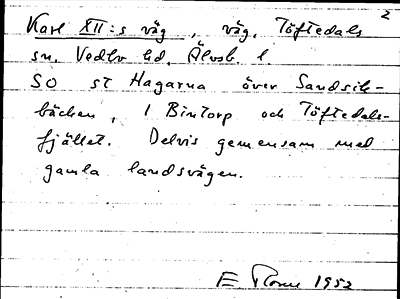 2
Karl XII:s väg, väg, Töftedals
sn. Vedbo hd. Älvsb. l.
SO st Hagarna över Sandsik-
bäcken, i Bintorp och Töftedals-
fjället. Delvis gemensam med
gamla landsvägen.
E. 1952